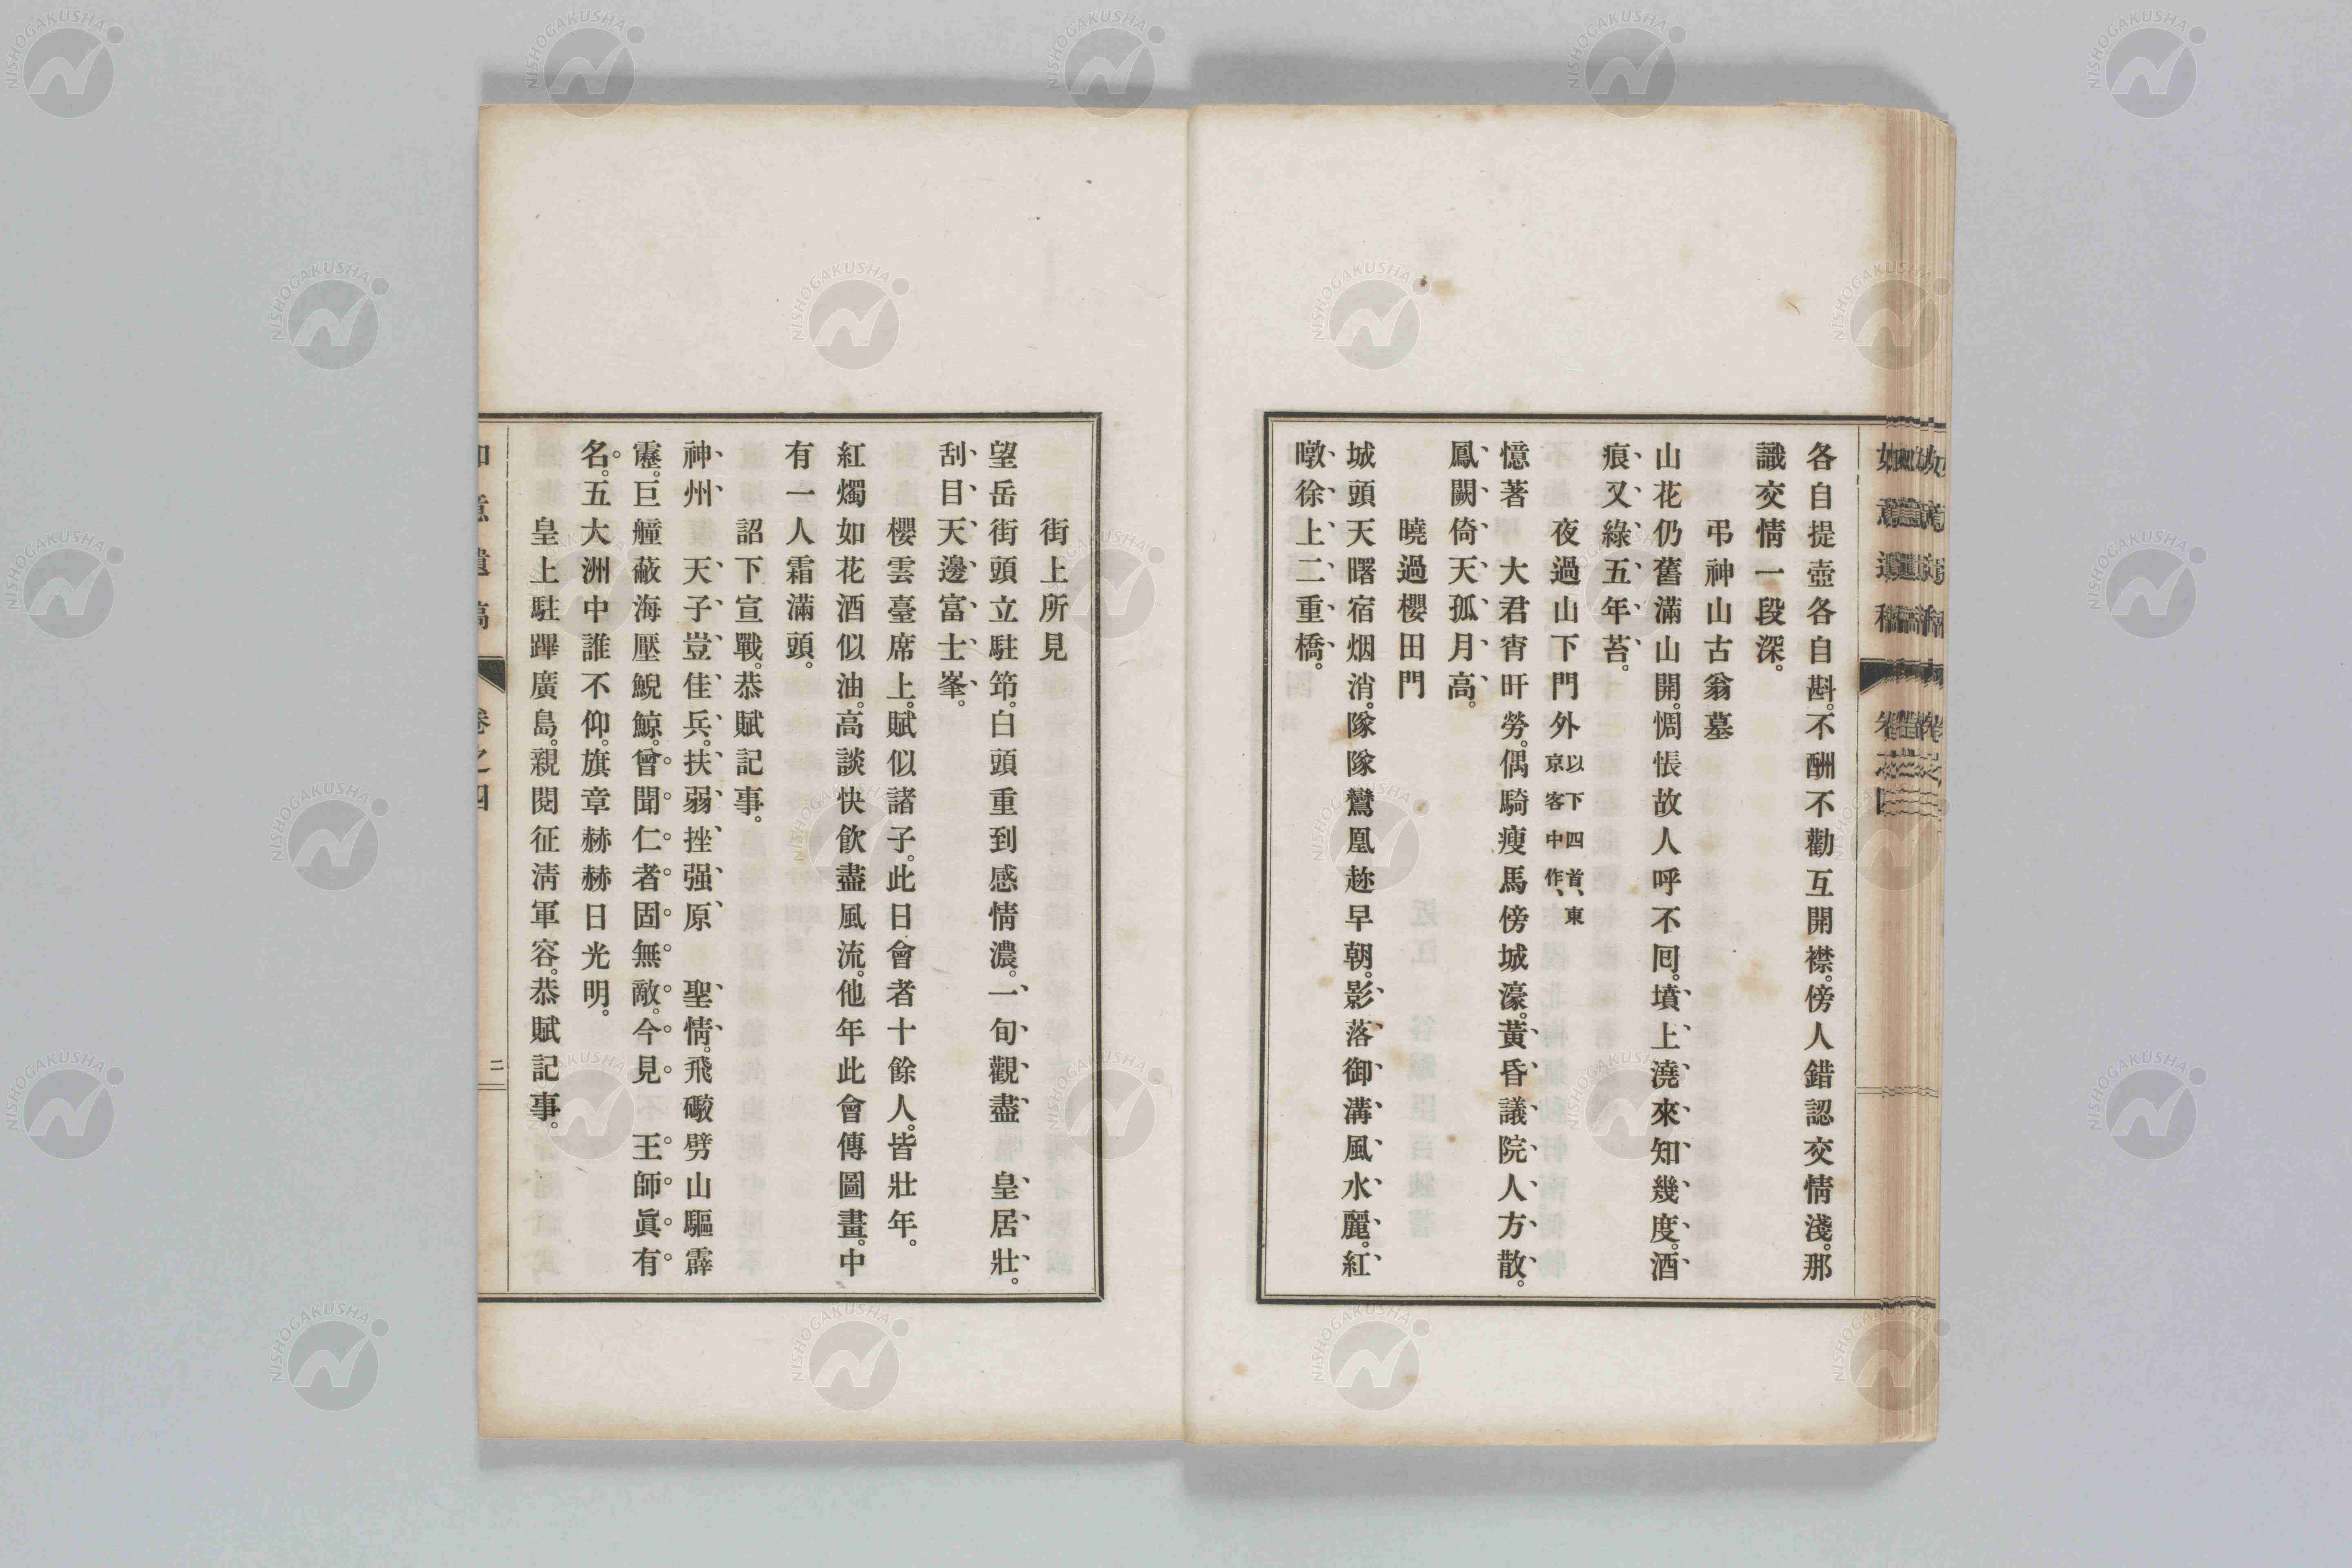 各自提壺各自斟。不酬不勸互開襟。傍人錯認交情淺。那
識交情一段深。
弔神山古翁墓
山花仍舊滿山開。惆悵故人呼不囘。墳上澆來知幾度。酒
痕又綠五年苔。
夜過山下門外 以下四首、東京客中作、
憶著 大君宵旰勞。偶騎瘦馬傍城濠。黃昏議院人方散。
鳳闕倚天孤月高。
曉過櫻田門
城頭天曙宿烟消。隊隊鸞凰趂早朝。影落御溝風水麗。紅
暾徐上二重橋。
街上所見
望岳街頭立駐筇。白頭重到感情濃。一旬觀盡 皇居壯。
刮目天邊富士峯。
櫻雲臺席上。賦似諸子。此日會者十餘人。皆壯年。
紅燭如花酒似油。高談快飮盡風流。他年此會傳圖畫。中
有一人霜滿頭。
詔下宣戰。恭賦記事。
神州 天子豈佳兵。扶弱挫强原 聖情。飛礮劈山驅霹
靂。巨艟蔽海壓鯢鯨。曾聞仁者固無敵。今見 王師眞有
名。五大洲中誰不仰。旗章赫赫日光明。
皇上駐蹕廣島。親閱征淸軍容。恭賦記事。
如意遺稿 卷之四 二